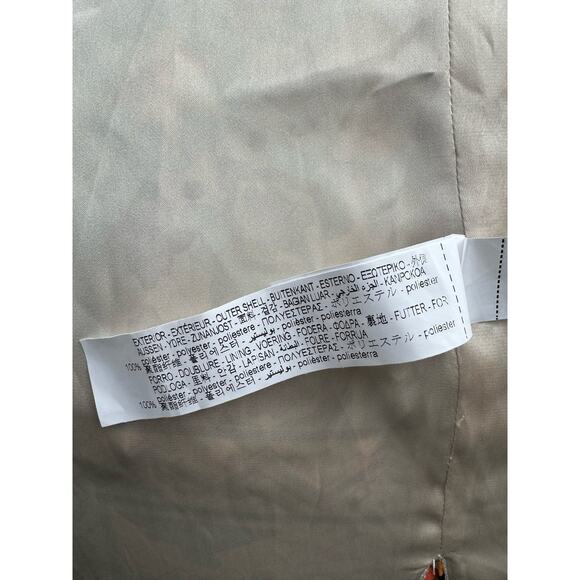 EXTERIOR - EXTÉRIEUR - OUTER SHELL - BUITENKANT - ESTERNO - ΕΞΩΤΕΡΙΚΟ -
AUSSEN - YDRE - ZUNANJOST - 面料 - 겉감 - BAGIAN LUAR - الجزء الخارجي - KANPOKOA
100% poliéster - polyester - polyester - poliestere - ΠΟΛΥΕΣΤΕΡΑΣ - ポリエステル - poliester
聚酯纤维 - 폴리에스터 - poliester - بوليستير - poliesterra
FORRO - DOUBLURE - LINING - VOERING - FODERA - ΦΟΔΡΑ - 裏地 - FUTTER - FOR
PODLOGA - 里料 - 안감 - LAPISAN - البطانة - FOLRE - FORRUA
100% poliéster - polyester - polyester - poliestere - ΠΟΛΥΕΣΤΕΡΑΣ - ポリエステル - poliester
聚酯纤维 - 폴리에스터 - poliester - بوليستير - poliesterra